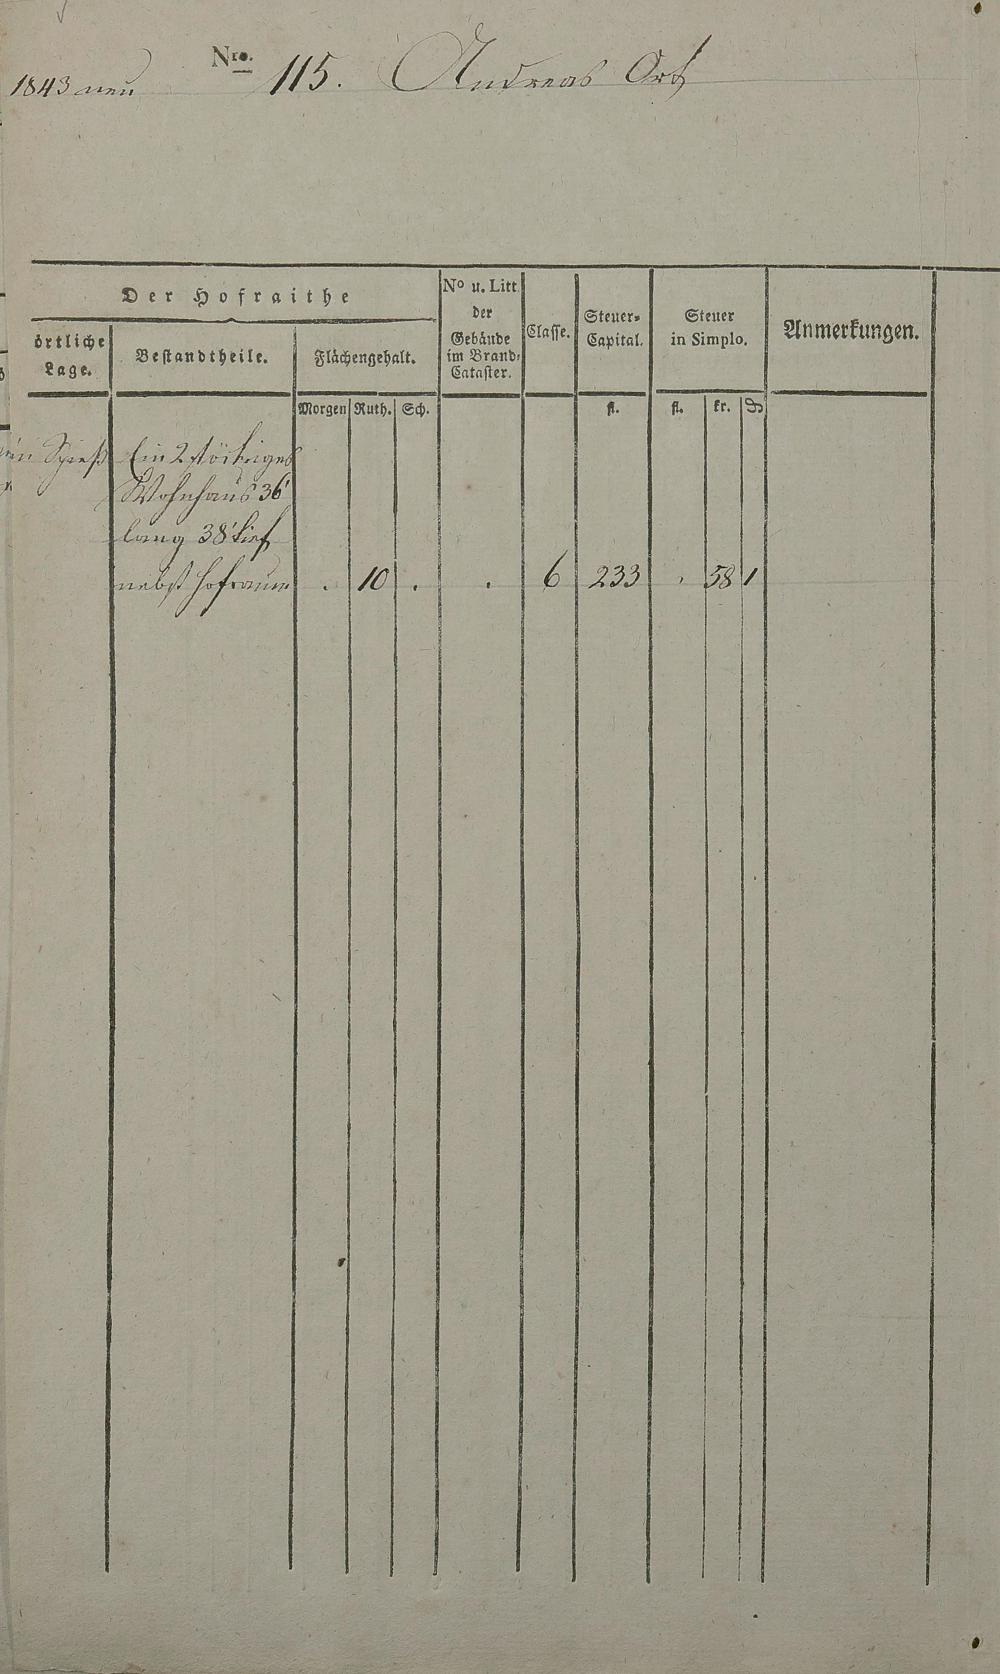 Nro. 115. Andreas Ort
1843 neu
Der Hofraithe
No u. Litt.
der
Gebäude
im Brand-
Cataster.
Classe.
Steuer-
Capital.
Steuer
in Simplo.
Anmerkungen.
örtliche
Lage.
Bestandtheile.
Flächengehalt.
Morgen Ruth. Sch. fl. fl. kr. ₰
Spieß Ein 2 stöckiges
Wohnhaus 36'
lang 38' tief
nebst Hofraum . 10 . . 6 233 . 58 1